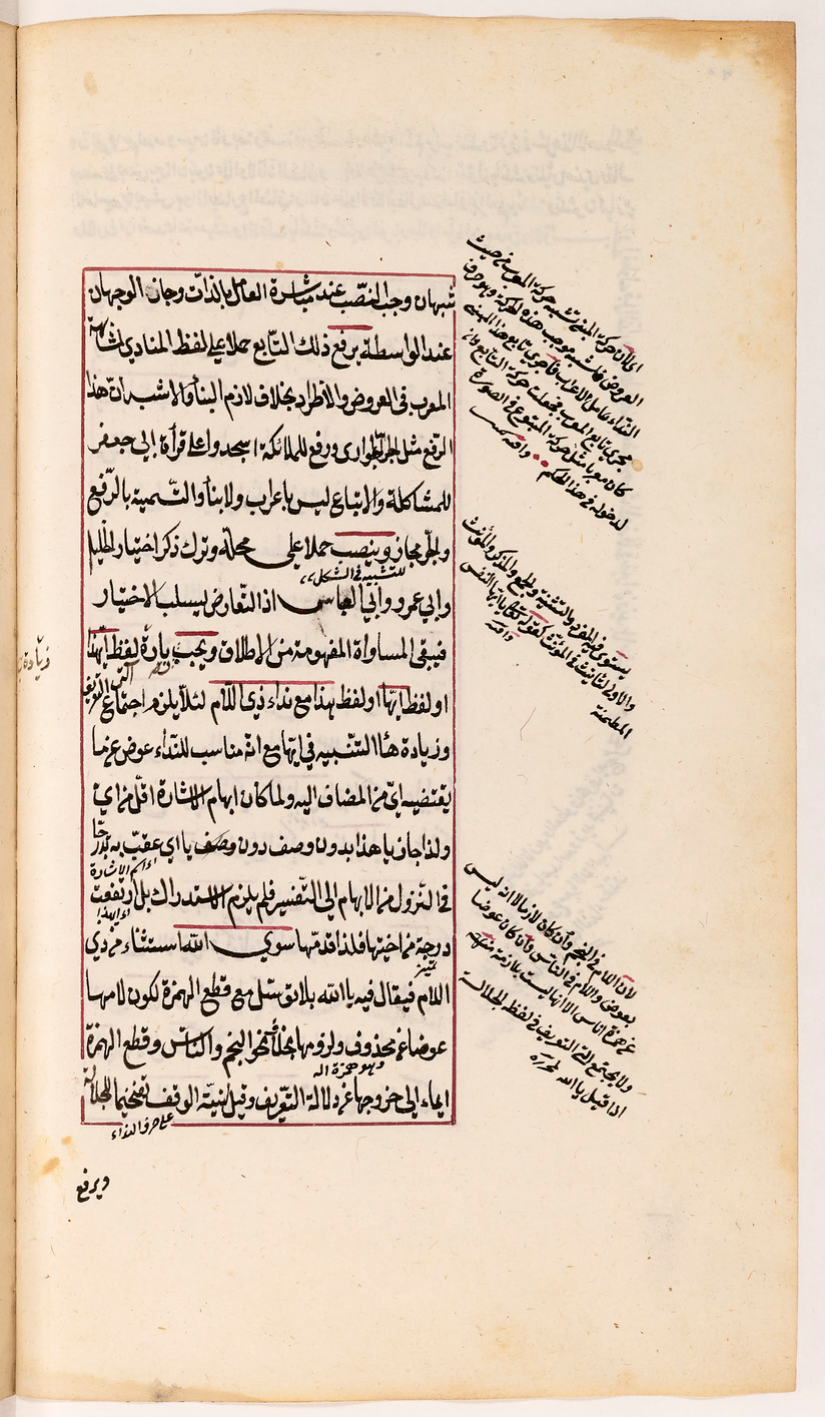 شبهان وجب النصب عند مباشرة العامل بالذات وجاز الوجهان
عند الواسطة يرفع ذلك التابع حملا على لفظ المنادى لمشابهة
المعرب فى العروض والاطراد بخلاف لازم البناء والاشبه ان هذا
الرفع مثل الجر الجوارى ورفع للملائكة اسجدوا على قرأة ابى جعفر
للمشاكلة والاتباع ليس باعراب ولا بناء والتسمية بالرفع
والجر مجاز وينصب حملا على محله وترك ذكر اختيار الخليل
للتشبيه فى الشكل
وابى عمرو وابى العباس اذ التعارض يسلب الاختيار
فبقى المساواة المفهومة من الاطلاق ويجب زيادة لفظ ايهذا
او لفظ ايها او لفظ هذا مع نداء ذى اللام لئلا يلزم اجتماع التى التعريف
وزيادة هاء التنبيه فى ايها مع انه مناسب للنداء عوض عما
يقتضيه اى من المضاف اليه ولما كان ابهام الاشارة اقل من اى
ولذا جاز يا هذا بدون وصف دون وصف يا اى عقب به تدرجا
اى اسم الاشارة
فى التنزل من الابهام الى التفسير فلم يلزم الاستدراك بل
درجة من اختيها فلذا قدمها سوى الله استثناء من ذى
اللام فيقال فيه يا الله بلا توسل مع قطع الهمزة لكون لامها
عوضا عن محذوف ولزومها بخلاف نحو النجم والناس وقطع الهمزة
وهو همزة اله
ايماء الى خروجها عن دلالة التعريف وقيل لنية الوقف تفخيما للجلالة
على حرف النداء
ويرفع
اى لان حركة المبنى تشبه حركة المعرب من حيث
العروض فاشبه موجب هذه الحركة وهو حرف
النداء عامل الاعراب فاجرى تابع هذا المبنى
مجرى تابع المعرب فجعلت حركة التابع وان
كان معربا مثل حركة المتبوع فى الصورة
لدخوله فى هذا الحكم
يستوى فيه المفرد والتثنية والجمع والمذكر والمؤنث
والاولى التانيث فى المؤنث كقوله تعالى يا ايتها النفس
المطمئنة
لان اللام فى النجم وان كان لازما لا انه ليس
بعوض واللام فى الناس وان كان عوضا
عن همزة اناس الا انها ليست بلازمة
ولا يجتمع التى التعريف فى لفظ الجلالة
اذا قيل يا الله